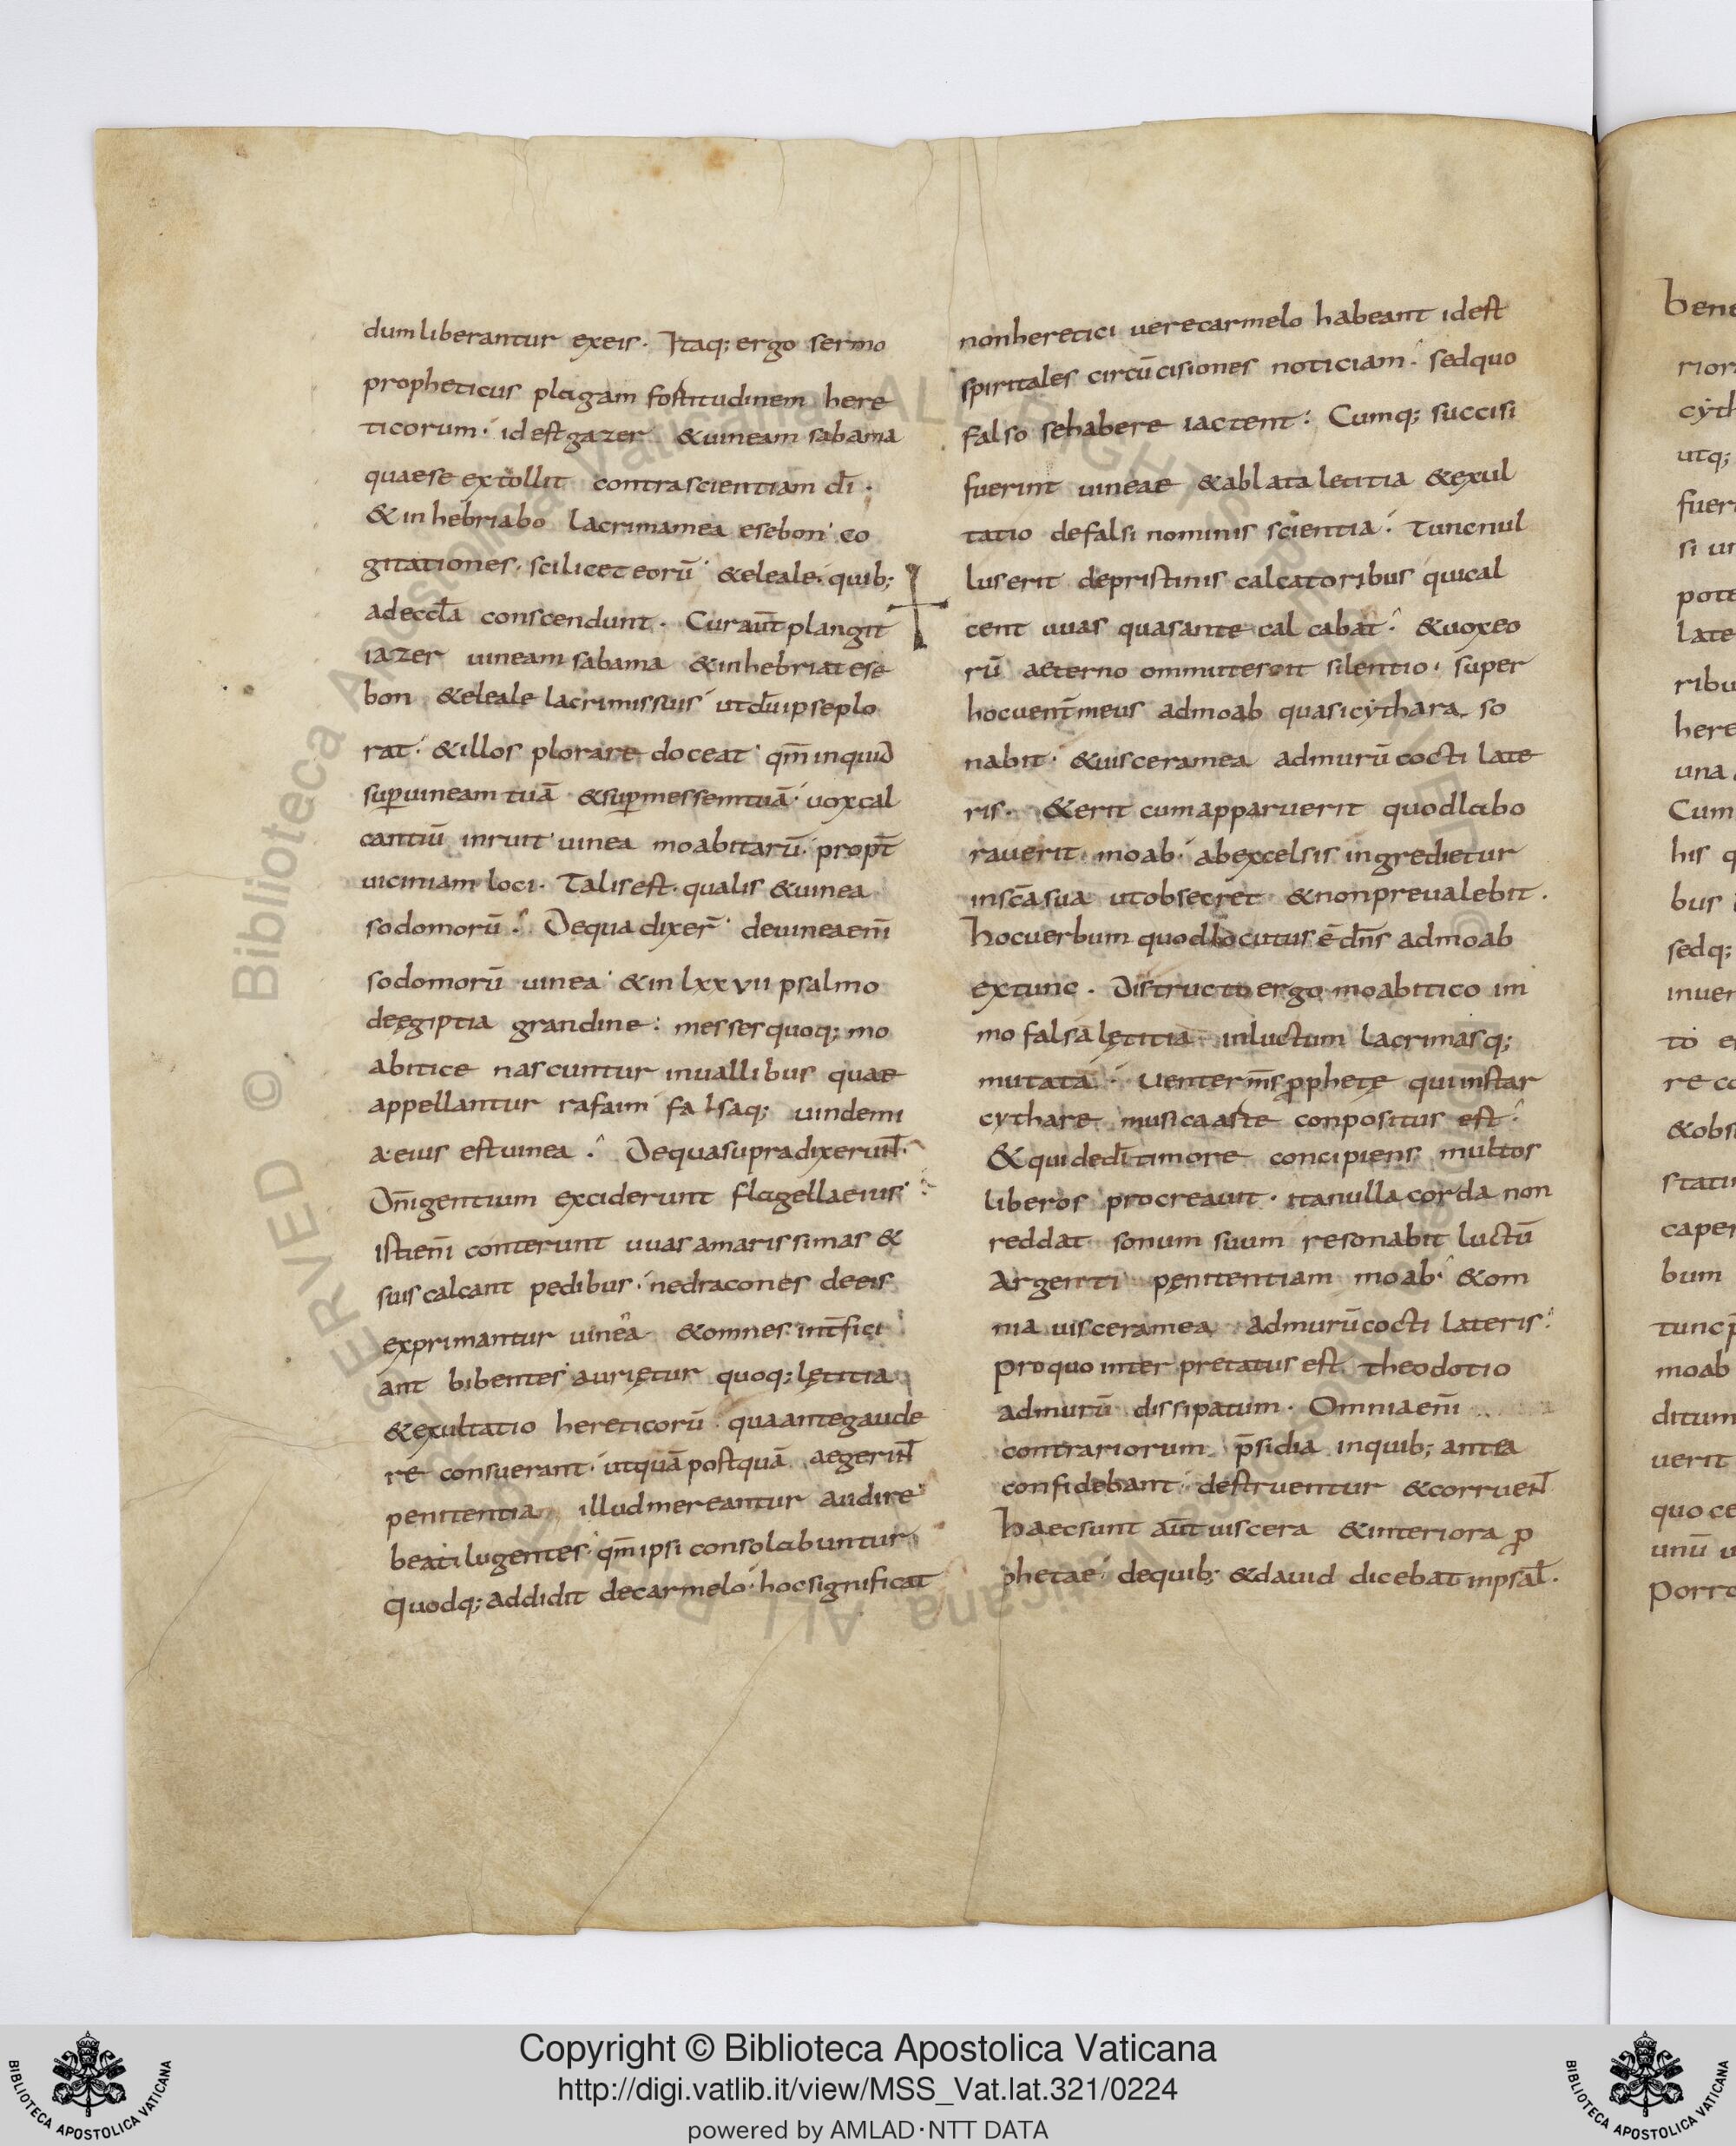 dum liberantur exeis. Itaq; ergo sermo
propheticus plagam fortitudinem here
ticorum. id est gazer &uineam sabama
quaese extollit contra scientiam dī.
& inhebriabo lacrima mea esebon co
gitationes. scilicet eorū &eleale. quib;
ad eccłā conscendunt. Cur aūt plangit
iazer uineam sabama &inhebriat ese
bon &eleale lacrimis suis ut dūipse plo
rat. &illos plorare doceat qm̄ inquid
sup uineam tuā &sup messem tuā. uox cal
cantiū inruit uinea moabitarū. propt̄
uiciniam loci. Talis est. qualis &uinea
sodomorū. De qua dixer̄ de uinea enī
sodomorū uinea &in lxxvii psalmo
de ęgiptia grandine: messes quoq; mo
abitice nascuntur in uallibus quae
appellantur rafaim falsaq; uindemi
a eius est uinea. De qua supra dixerunt̄.
Dn̄i gentium exciderunt flagella eius
isti enī conterunt uuas amarissimas &
suis calcant pedibus. ne dracones de eis
exprimantur uinea &omnes int̄fici
ant bibentes auriętur quoq; lętitia
&exultatio hereticorū qua ante gaude
re consuerant. utquā postquā aegerint̄
penitentia illud mereantur audire
beati lugentes. qm̄ ipsi consolabuntur
Quodq; addidit de carmelo. hoc significat
non heretici uere carmelo habeant id est
spiritales circūcisiones noticiam. sed quo
falso se habere iactent: Cumq; succisi
fuerint uineae &ablata letitia &exul
tatio de falsi nominis scientia. Tunc nul
lus erit de pristinis calcatoribus qui cal
cent uuas quas ante calcabat. &uox eo
rū aeterno ommutescit silentio. super
hoc uent̄ meus ad moab quasi cythara so
nabit. &uiscera mea ad murū cocti late
ris. &erit cum apparuerit quod labo
rauerit moab. ab excelsis ingredietur
in sc̄a sua ut obsecret &non preualebit.
Hoc uerbum quod locutus ē dn̄s ad moab
ex tunc. Distructo ergo moabitico im
mo falsa lętitia in luctum lacrimasq;
mutata. Uenter m̄s p̄phetę qui instar
cythare musica arte conpositus est
& qui de dī timore concipiens multos
liberos procreauit. ita nulla corda non
reddat sonum suum resonabit luctū
Argenti pęnitentiam moab &om
nia uiscera mea ad murū cocti lateris.
Pro quo interpretatus est theodotio
ad murū dissipatum. Omnia enī
contrariorum p̄sidia in quib; antea
confidebant. destruentur &corruent̄
Haec sunt aūt uiscera &interiora p̄
phetae. de quib; &dauid dicebat in psal̄.
bene
utq;
pote
late
ribu
here
una
Cum
his q
bus
sedq;
inuer
re co
&obs
statim
caper
bum
tunc p
moab
ditum
uerit
quo ce
unū u
Porro
Copyright © Biblioteca Apostolica Vaticana
http://digi.vatlib.it/view/MSS_Vat.lat.321/0224
powered by AMLAD·NTT DATA
BIBLIOTECA APOSTOLICA VATICANA
BIBLIOTECA APOSTOLICA VATICANA